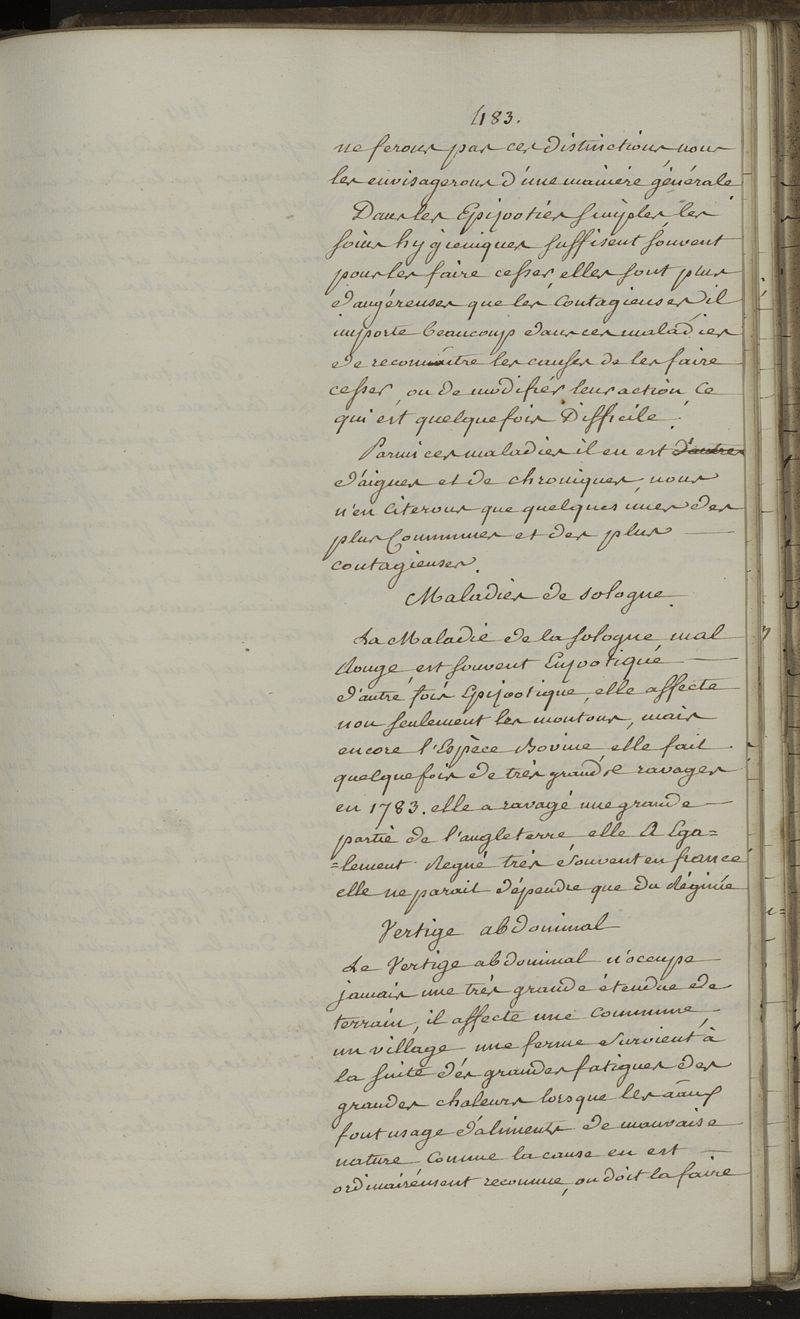 483.
ne ferons pas ces distinctions, nous
les envisagerons d'une maniere générale
Dans les Epizooties simples les
soins hygieniques suffisent souvent
pour les faire cesser, elles sont plus
dangéreuses que les contagieuses il
importe beaucoup dans ces maladies
de reconnaitre les causes de les faire
cesser, ou de modifiés leur action, ce
qui est quelquefois Difficile.
Parmi ces maladies il en est d'autres
d'aigues et de chroniques, nous
n'en Citerons que quelques unes des
plus Communes et des plus
contagieuses.
Maladies de sologne.
La Maladie de la sologne, mal
Rouge, est souvent Enzootique
d'autre fois Epizootique, elle affecte
non seulement les moutons, mais
encore l'Espèce Bovine, elle fait
quelquefois de très grands ravages
en 1783. elle a ravagé une grande
partie de l'angleterre elle A Ega=
=lement Regné très souvent en france
elle ne parait dépendre que du Régime
Vertige abdominal
Le Vertige abdominal n'occupe
jamais une très grande étendue de
terrain, il affecte une Commune,
un village une ferme survient à
la suite dés grandes fatigues des
grandes chaleurs lorsque les aãux
font usage d'aliments de mauvaise
nature Comme la cause en est
ordinairément reconnue, on doit la faire